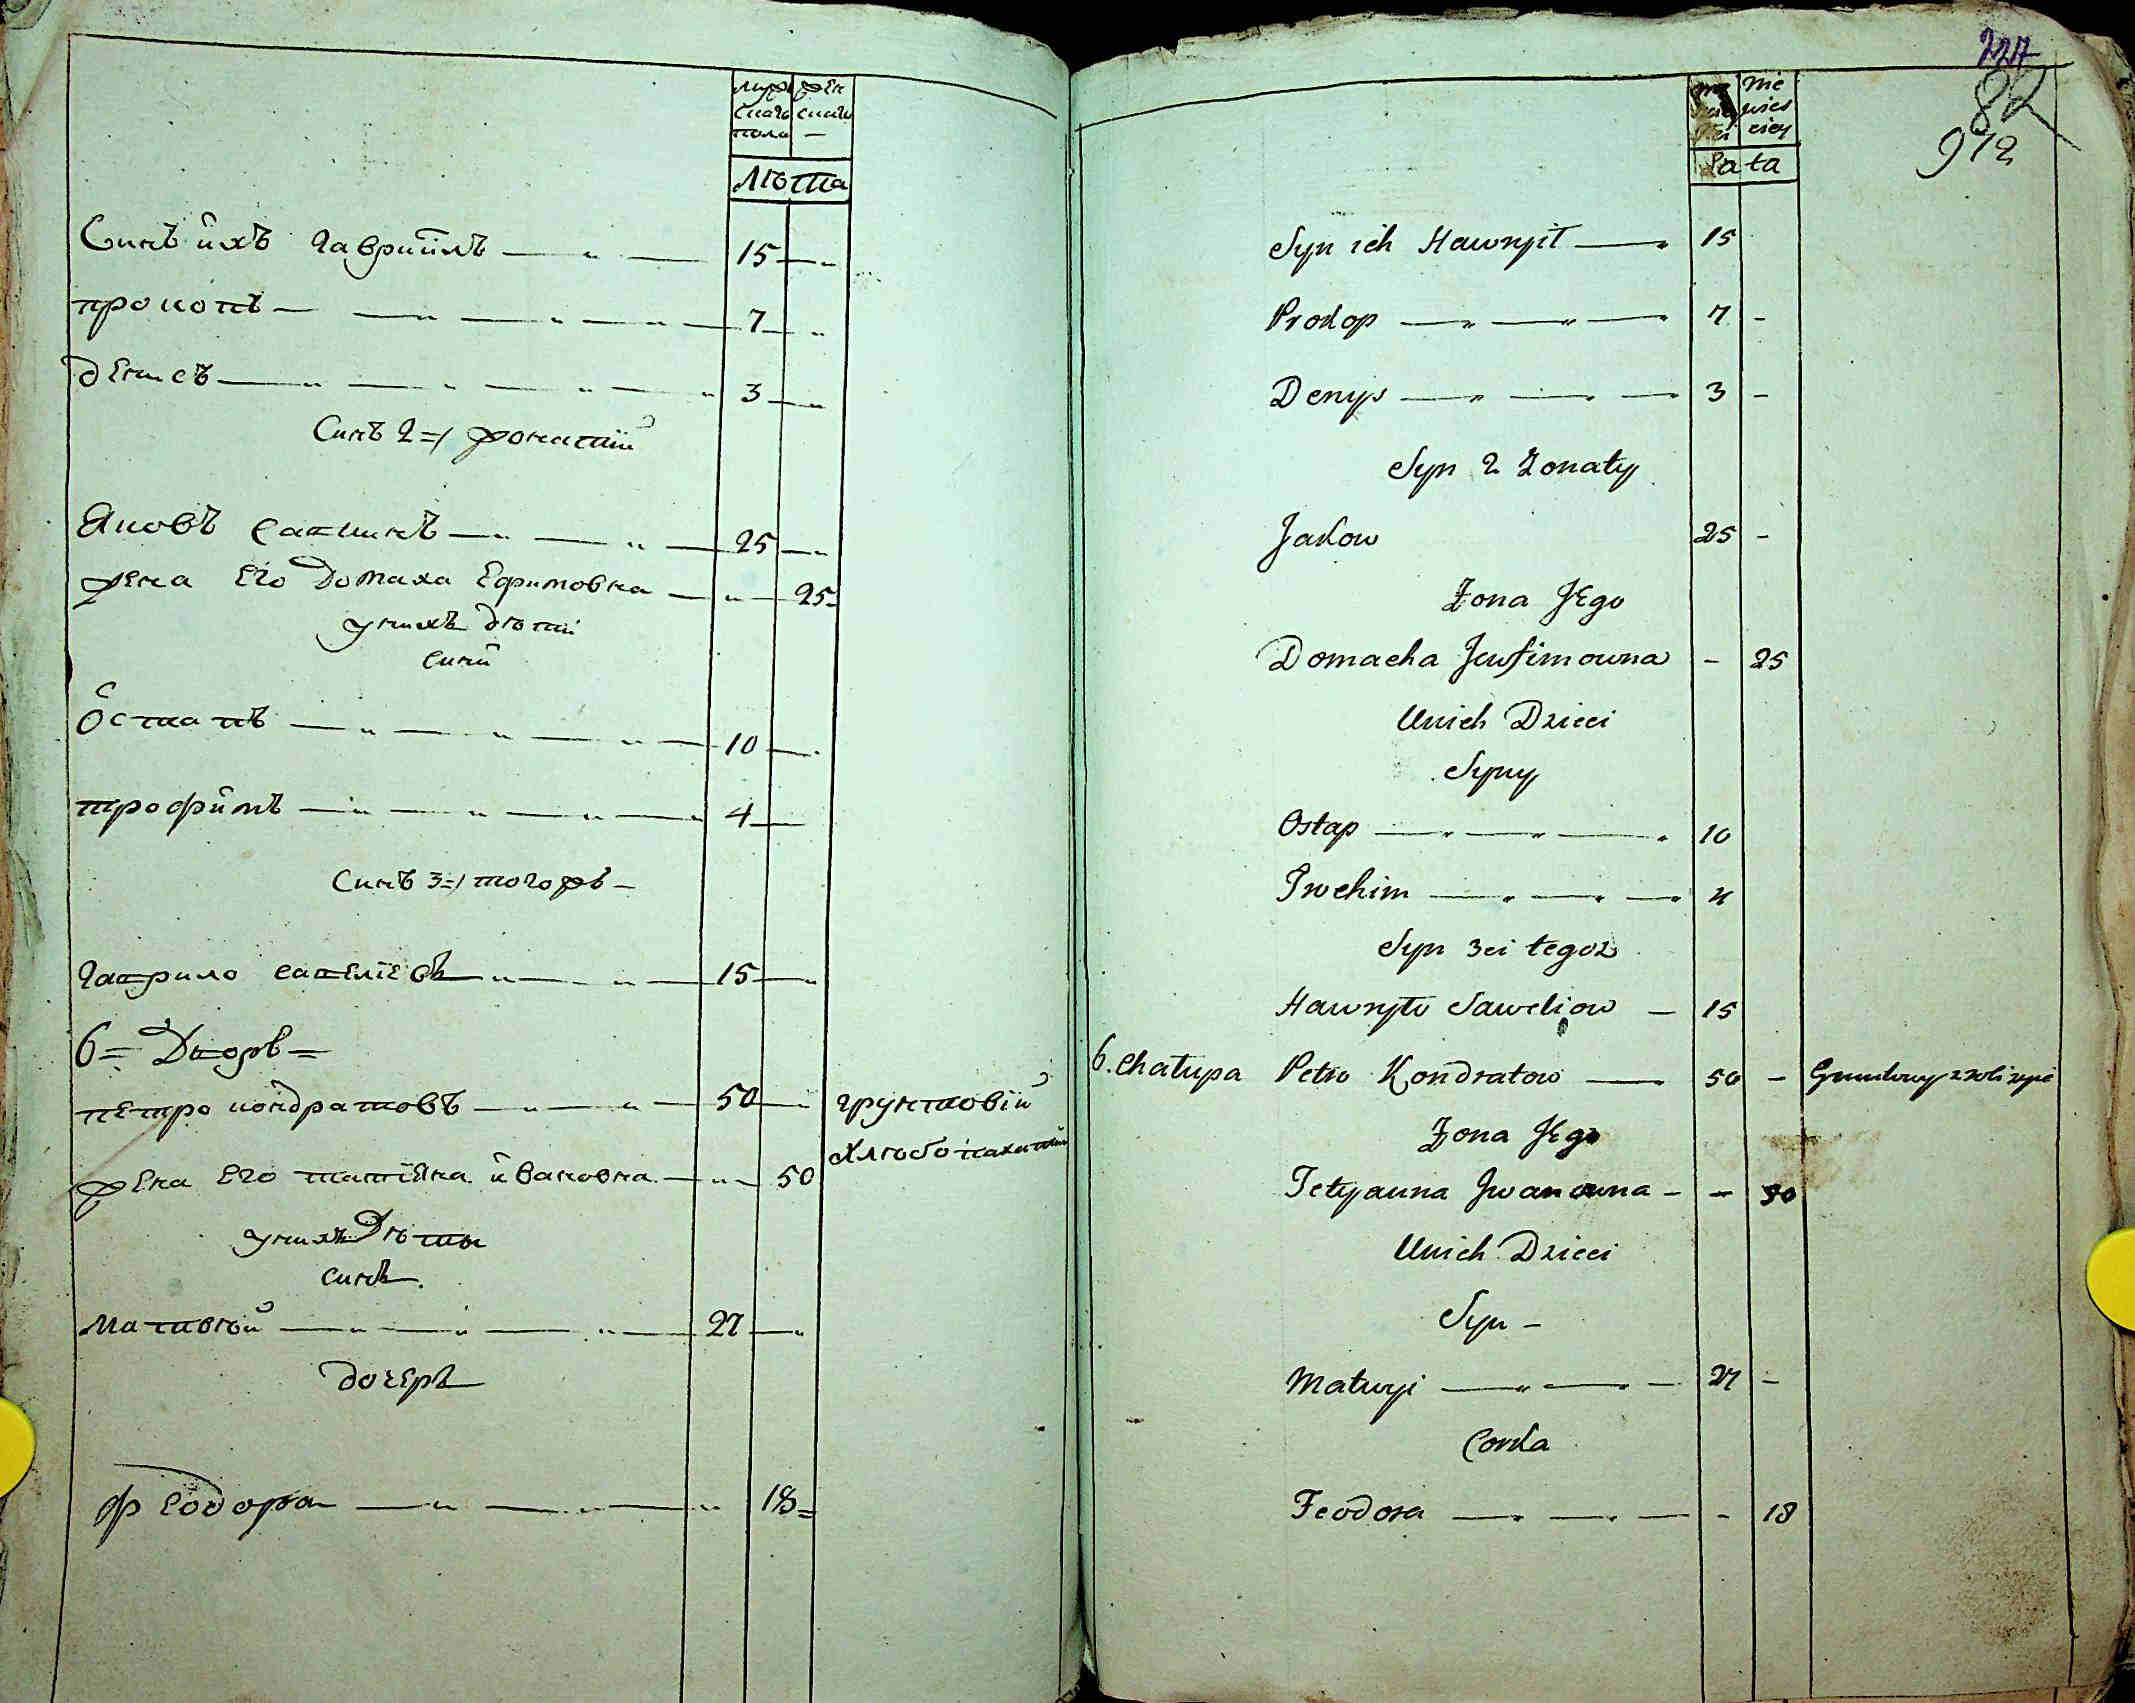 мужеска полу
женска
лѣта
Синъ ихъ Гавриилъ 15
прокопъ 7
денисъ 3
Синъ 2 жонатїй
Яковъ савинъ 25
жена Его Домаха Ефимовна 25
у нихъ дѣти
сини
Остапъ 10
трофимъ 4
Синъ 3 тогожъ
Гаврило савелїевъ 15
6 Дворъ
петро кондратовъ 50 грунтовїй
хлѣбопахатній
жена Его татїяна ивановна 50
у нихъ Дѣти
синъ
матвѣй 27
дочеръ
феодора 18
227
82
912
nie wies ciey
Lata
Syn ich Hawryił 15
Prokop 7 -
Denys 3 -
Syn 2 Żonaty
Jakow 25 -
Żona JEgo
Domacha Jewfimowna - 25
Unich Dzieci
Syny
Ostap 10
Trochim 4
Syn 3ci tegoż
Hawryło Saweliow 15
6. Chałupa Petro Kondratow 50 - Gruntowy
Żona JEgo
Tetyanna Jwanowna - 50
Unich Dzieci
Syn -
Matwyi 27 -
Corka
Feodora - 18